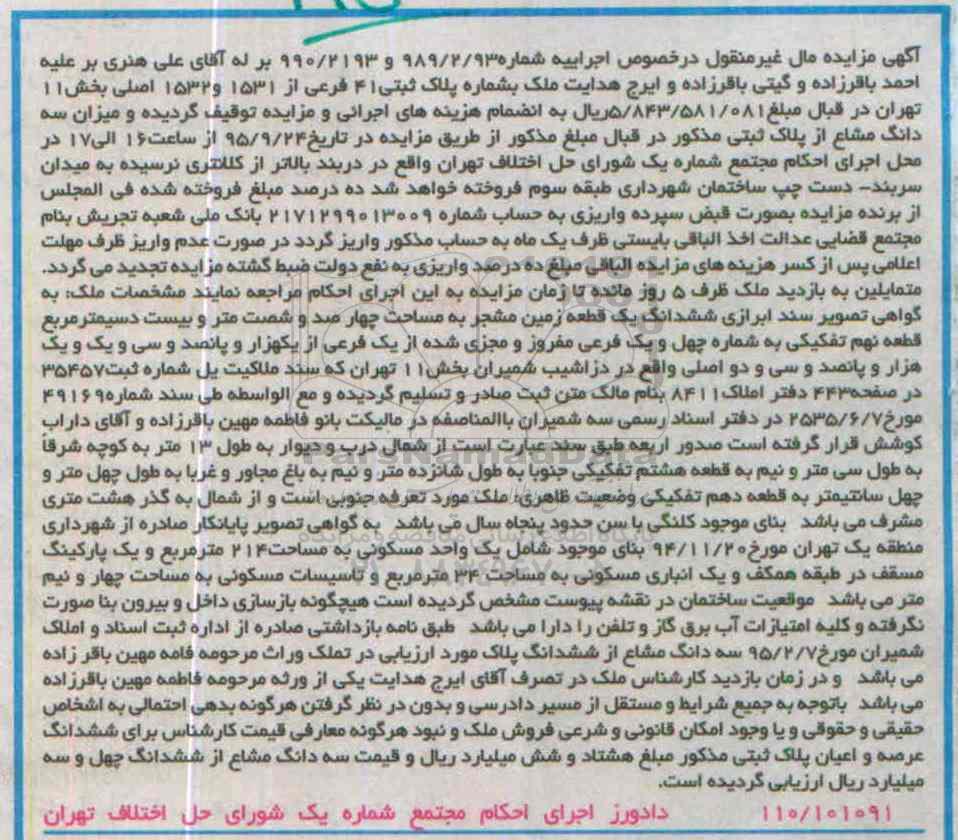 آگهی مزایده مال غیرمنقول درخصوص اجراییه شماره۹۸۹/۲/۹۳ و ۹۹۰/۲۱۹۳ بر له آقای علی هنری بر علیه
احمد باقرزاده و گیتی باقرزاده و ایرج هدایت ملک بشماره پلاک ثبتی۴۱ فرعی از ۱۵۳۱ و۱۵۳۲ اصلی بخش۱۱
تهران در قبال مبلغ۵/۸۴۳/۵۸۱/۰۸۱ریال به انضمام هزینه های اجرائی و مزایده توقیف گردیده و میزان سه
دانگ مشاع از پلاک ثبتی مذکور در قبال مبلغ مذکور از طریق مزایده در تاریخ۹۵/۹/۲۴ از ساعت۱۶ الی۱۷ در
محل اجرای احکام مجتمع شماره یک شورای حل اختلاف تهران واقع در دربند بالاتر از کلانتری نرسیده به میدان
سربند- دست چپ ساختمان شهرداری طبقه سوم فروخته خواهد شد ده درصد مبلغ فروخته شده فی المجلس
از برنده مزایده بصورت قبض سپرده واریزی به حساب شماره ۲۱۷۱۲۹۹۰۱۳۰۰۹ بانک ملی شعبه تجریش بنام
مجتمع قضایی عدالت اخذ الباقی بایستی ظرف یک ماه به حساب مذکور واریز گردد در صورت عدم واریز ظرف مهلت
اعلامی پس از کسر هزینه های مزایده الباقی مبلغ ده درصد واریزی به نفع دولت ضبط گشته مزایده تجدید می گردد.
متمایلین به بازدید ملک ظرف ۵ روز مانده تا زمان مزایده به این اجرای احکام مراجعه نمایند مشخصات ملک: به
گواهی تصویر سند ابرازی ششدانگ یک قطعه زمین مشجر به مساحت چهار صد و شصت متر و بیست دسیمترمربع
قطعه نهم تفکیکی به شماره چهل و یک فرعی مفروز و مجزی شده از یک فرعی از یکهزار و پانصد و سی و یک و یک
هزار و پانصد و سی و دو اصلی واقع در دزاشیب شمیران بخش۱۱ تهران که سند مالکیت یل شماره ثبت۳۵۴۵۷
در صفحه۴۴۳ دفتر املاک۸۴۱۱ بنام مالک متن ثبت صادر و تسلیم گردیده و مع الواسطه طی سند شماره۴۹۱۶۹
مورخ۲۵۳۵/۶/۷ در دفتر اسناد رسمی سه شمیران باالمناصفه در مالیکت بانو فاطمه مهین باقرزاده و آقای داراب
کوشش قرار گرفته است صدور اربعه طبق سند عبارت است از شمال درب و دیوار به طول ۱۳ متر به کوچه شرقاً
به طول سی متر و نیم به قطعه هشتم تفکیکی جنوبا به طول شانزده متر و نیم به باغ مجاور و غربا به طول چهل متر و
چهل سانتیمتر به قطعه دهم تفکیکی وضعیت ظاهری: ملک مورد تعرفه جنوبی است و از شمال به گذر هشت متری
مشرف می باشد   بنای موجود کلنگی با سن حدود پنجاه سال می باشد   به گواهی تصویر پایانکار صادره از شهرداری
منطقه یک تهران مورخ۹۴/۱۱/۲۰ بنای موجود شامل یک واحد مسکونی به مساحت۲۱۴ مترمربع و یک پارکینگ
مسقف در طبقه همکف و یک انباری مسکونی به مساحت ۳۴ مترمربع و تاسیسات مسکونی به مساحت چهار و نیم
متر می باشد   موقعیت ساختمان در نقشه پیوست مشخص گردیده است هیچگونه بازسازی داخل و بیرون بنا صورت
نگرفته و کلیه امتیازات آب برق گاز و تلفن را دارا می باشد   طبق نامه بازداشتی صادره از اداره ثبت اسناد و املاک
شمیران مورخ۹۵/۲/۷ سه دانگ مشاع از ششدانگ پلاک مورد ارزیابی در تملک وراث مرحومه فامه مهین باقر زاده
می باشد   و در زمان بازدید کارشناس ملک در تصرف آقای ایرج هدایت یکی از ورثه مرحومه فاطمه مهین باقرزاده
می باشد   باتوجه به جمیع شرایط و مستقل از مسیر دادرسی و بدون در نظر گرفتن هرگونه بدهی احتمالی به اشخاص
حقیقی و حقوقی و یا وجود امکان قانونی و شرعی فروش ملک و نبود هرگونه معارفی قیمت کارشناس برای ششدانگ
عرصه و اعیان پلاک ثبتی مذکور مبلغ هشتاد و شش میلیارد ریال و قیمت سه دانگ مشاع از ششدانگ چهل و سه
میلیارد ریال ارزیابی گردیده است.
۱۱۰/۱۰۱۰۹۱ دادورز اجرای احکام مجتمع شماره یک شورای حل اختلاف تهران